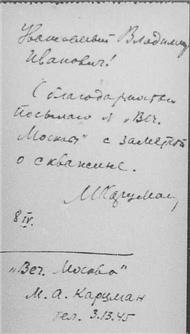 Уважаемый Владимир
Иванович!
С благодарностью
посылаю я „Веч.
Москву" с заметкой
о скважине.
М Карцман
8 IV.
„Веч. Москва"
М. А. Карцман
тел. 3.13.45